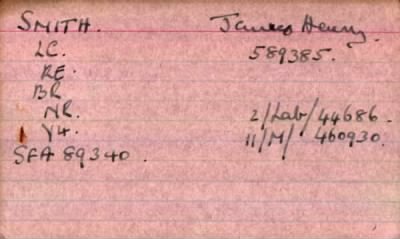 SMITH. James Henry.
LC. 589385.
RE.
BR
NR. 2/Lab/44686.
V4. 11/M/460930.
SFA 89340.